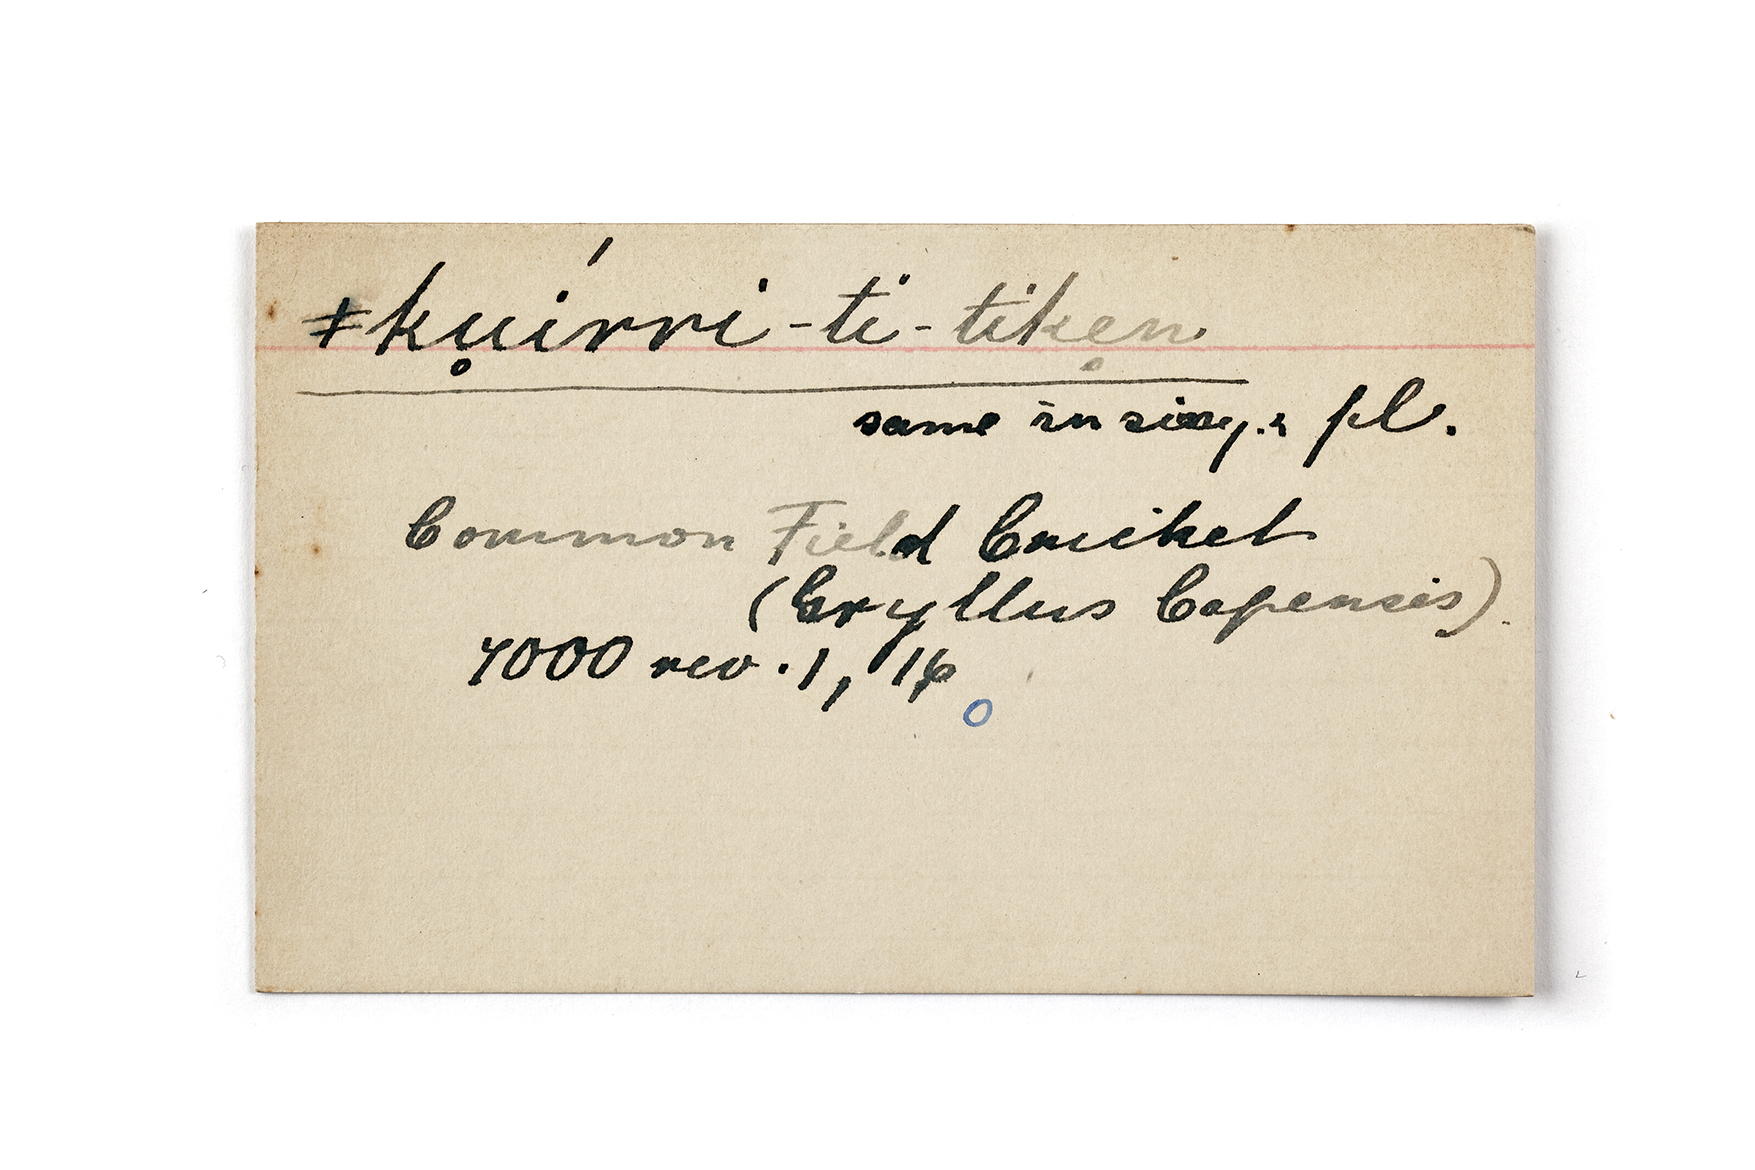 ǂku̥írri-ti-tike̥n.
same in sing. & pl.
Common Field Cricket
(Gryllus Capensis).
7000 rev. 1, 16